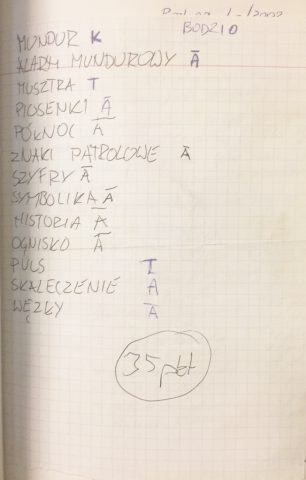 BODZIO
MUNDUR K
ALARM MUNDUROWY Ā
MUSZTRA T
PIOSENKI Ā
PÓŁNOC Ā
ZNAKI PATROLOWE Ā
SZYFRY Ā
SYMBOLIKA Ā
HISTORIA Ā
OGNISKO Ā
PULS T
SKALECZENIE Ā
WĘZŁY Ā
35 pkt